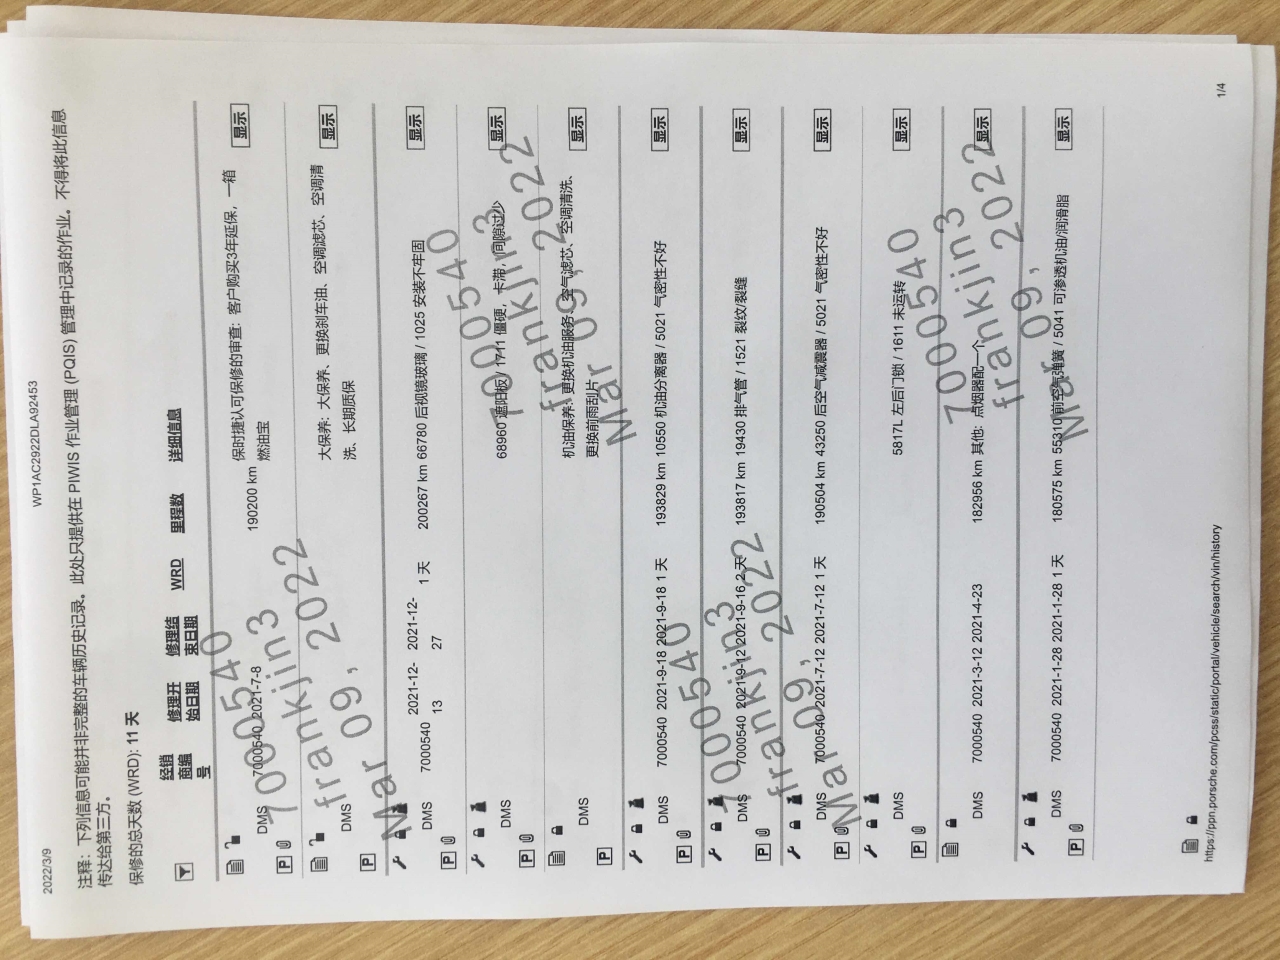 2022/3/9
WP1AC2922DLA92453
注释：下列信息可能并非完整的车辆历史记录。此处只提供在 PIWIS 作业管理 (PQIS) 管理中记录的作业。不得将此信息
传达给第三方。
保修的总天数 (WRD): 11 天
经销商编号 修理开始日期 修理结束日期 WRD 里程数 详细信息
DMS 7000540 2021-7-8 190200 km 保时捷认可保修的审查: 客户购买3年延保，一箱
燃油宝 显示
P
DMS 大保养: 大保养、更换刹车油、空调滤芯、空调清
洗、长期质保 显示
P
DMS 7000540 2021-12-13 2021-12-27 1 天 200267 km 66780 后视镜玻璃 / 1025 安装不牢固 显示
P
DMS 68960 遮阳板 / 1711 僵硬，卡滞，间隙过少 显示
P
DMS 机油保养: 更换机油服务、空气滤芯、空调清洗、
更换前雨刮片 显示
P
DMS 7000540 2021-9-18 2021-9-18 1 天 193829 km 10550 机油分离器 / 5021 气密性不好 显示
P
DMS 7000540 2021-9-12 2021-9-16 2 天 193817 km 19430 排气管 / 1521 裂纹/裂缝 显示
P
DMS 7000540 2021-7-12 2021-7-12 1 天 190504 km 43250 后空气减震器 / 5021 气密性不好 显示
P
DMS 5817L 左后门锁 / 1611 未运转 显示
P
DMS 7000540 2021-3-12 2021-4-23 182956 km 其他: 点烟器配一个 显示
DMS 7000540 2021-1-28 2021-1-28 1 天 180575 km 55310 前空气弹簧 / 5041 可渗透机油/润滑脂 显示
P
https://ppn.porsche.com/pcss/static/portal/vehicle/search/vin/history
1/4
7000540
frankjin3
Mar 09, 2022
7000540
frankjin3
Mar 09, 2022
7000540
frankjin3
Mar 09, 2022
7000540
frankjin3
Mar 09, 2022